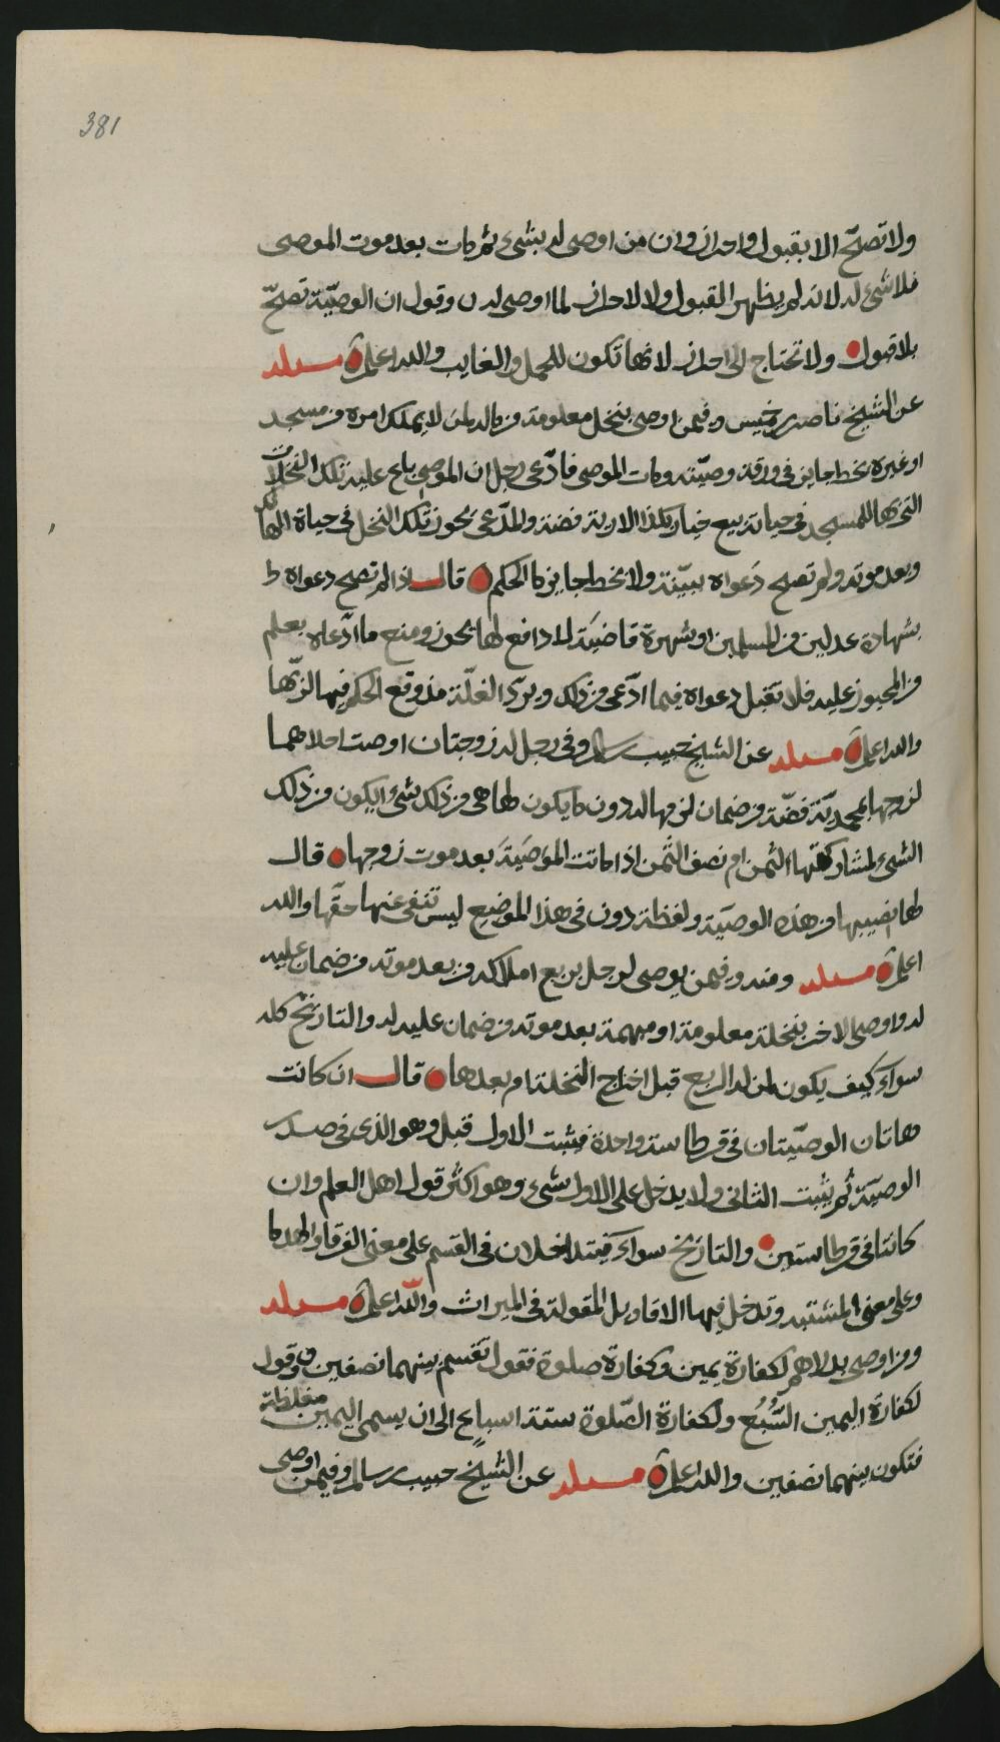 381
ولا تصلح الا بقبول واحراز وان من اوصى له بشيء ثم مات بعد موت الموصي
فلا شيء له لانه لم يظهر القبول ولا الاحراز لما اوصى له ن وقول ان الوصيّة تصحّ
بلا قبول ولا تحتاج الى احراز لانها تكون للحمل والغايب والله اعلم مسئلة
عن الشيخ ناصر بن خميس وفيمن اوصى بنخل معلومة من ماله لمن لا يملك امره من مسجد
او غيره بخط جايز في ورقة وصيّته ومات الموصي فادّعى رجل ان الموصي باع عليه تلك النخلات
التي بها للمسجد في حياته بيع خيار بكذا لارية فضة والمدّعي يحوز تلك النخل في حياة الهالك
وبعد موته ولم تصح دعواه ببيّنة ولا بخط جايز ما الحكم قال اذا لم تصح دعواه ط
بشهادة عدلين من المسلمين او شهرة قاضية لا دافع لها بحوز ومنع ما ادّعاه بعلم
من المحيوز عليه فلا تقبل دعواه فيما ادّعى من ذلك ويردّ الغلّة مذ وقع الحكم فيها لربّها
والله اعلم مسئلة عن الشيخ حبيب بن سالم وفي رجل له زوجتان اوصت احداهما
لزوجها بمحمديّة فضّة من ضمان لزمها له دون ما يكون لها هي من ذلك شيء ايكون من ذلك
الشيء لمشاركتها الثمن ام نصف الثمن اذا ماتت الموصيَة بعد موت زوجها قال
لها نصيبها من هذه الوصيّة ولفظة دون في هذا الموضع ليس تنفي عنها حقّها والله
اعلم مسئلة ومنه وفيمن يوصي لرجل بربع املاكه من بعد موته من ضمان عليه
له واوصى لاخر بنخلة معلومة او مبهمة بعد موته من ضمان عليه له والتاريخ كله
سواء كيف يكون لمن له الربع قبل اخراج النخلة ام بعدها قال ان كانت
هاتان الوصيّتان في قرطاسة واحدة فيثبت الاول قبل وهو الذي في صدر
الوصيّة ثم يثبت الثاني ولا يدخل على الاول شيء وهو اكثر قول اهل العلم وان
كانتا في قرطاستين والتاريخ سواء فيتداخلان في القسم على معنى الغرقا والهدما
وعلى معنى المشتبه وتدخل فيها الاقاويل المقولة في الميراث والله اعلم مسئلة
ومن اوصى بدراهم لكفارة يمين وكفارة صلوة فقول تقسم بينهما نصفين وقول
لكفارة اليمين السُّبُع ولكفارة الصّلوة ستة اسباع الى ان يسمي اليمين مغلظة
فتكون بينهما نصفين والله اعلم مسئلة عن الشيخ حبيب بن سالم وفيمن اوصى